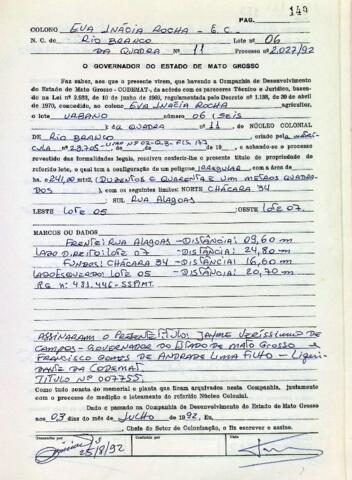 149
PAG.
COLONO EVA INÁCIA ROCHA - E.C.
N. C. de RIO BRANCO Lote Nº 06
DA QUADRA Nº 11 Processo nº 2.027/92
O GOVERNADOR DO ESTADO DE MATO GROSSO
Faz saber, aos que o presente virem, que havendo a Companhia de Desenvolvimento
do Estado de Mato Grosso - CODEMAT-, de acordo com os pareceres Técnico e Jurídico, basea-
dos na Lei Nº 2.883, de 10 de junho de 1969, regulamentada pelo Decreto Nº 1.138, de 29 de abril
de 1970, concedido, ao colono EVA INÁCIA ROCHA agricultor,
o lote URBANO número 06 (SEIS
) da QUADRA nº 11, de NÚCLEO COLONIAL
DE RIO BRANCO, criado pela MATRÍ-
CULA nº 28.705- FLS. 177 e achando-se o processo
revestido das formalidades legais, resolveu conferir-lhe o presente título de propriedade do
referido lote, o qual tem a configuração de um polígono IRREGULAR, com a área de
ha. 241,00 mts² (DUZENTOS E QUARENTA E UM METROS QUADRA-
DOS), com os seguintes limites: NORTH CHÁCARA 34
SUL RUA ALAGOAS
LESTE LOTE 05 OESTE LOTE 07.
MARCOS OU DADOS
FRENTE: RUA ALAGOAS - DISTÂNCIA: 09,60 m
LADO DIREITO: LOTE 07 - DISTÂNCIA: 24,80 m
FUNDOS: CHÁCARA 34 - DISTÂNCIA: 16,60 m
LADO ESQUERDO: LOTE 05 - DISTÂNCIA: 20,70 m
RG nº: 431.446-SSPMT.
ASSINARAM O PRESENTE TÍTULO: JAYME VERÍSSIMO DE
CAMPOS - GOVERNADOR DO ESTADO DE MATO GROSSO e
FRANCISCO GOMES DE ANDRADE LIMA FILHO - LIQUI-
DANTE DA CODEMAT.
TÍTULO Nº 007755.
Como tudo consta do memorial e planta que ficam arquivados nesta Companhia, juntamente
com o processo de medição e loteamento do referido Núcleo Colonial.
Dado e passado na Companhia de Desenvolvimento do Estado de Mato Grosso
aos 03 dias do mês de JULHO de 1992, Eu,
, Chefe do Setor de Colonização, o fiz escrever e assino.
Transcrito por
Conferido por
Visto
25/8/92